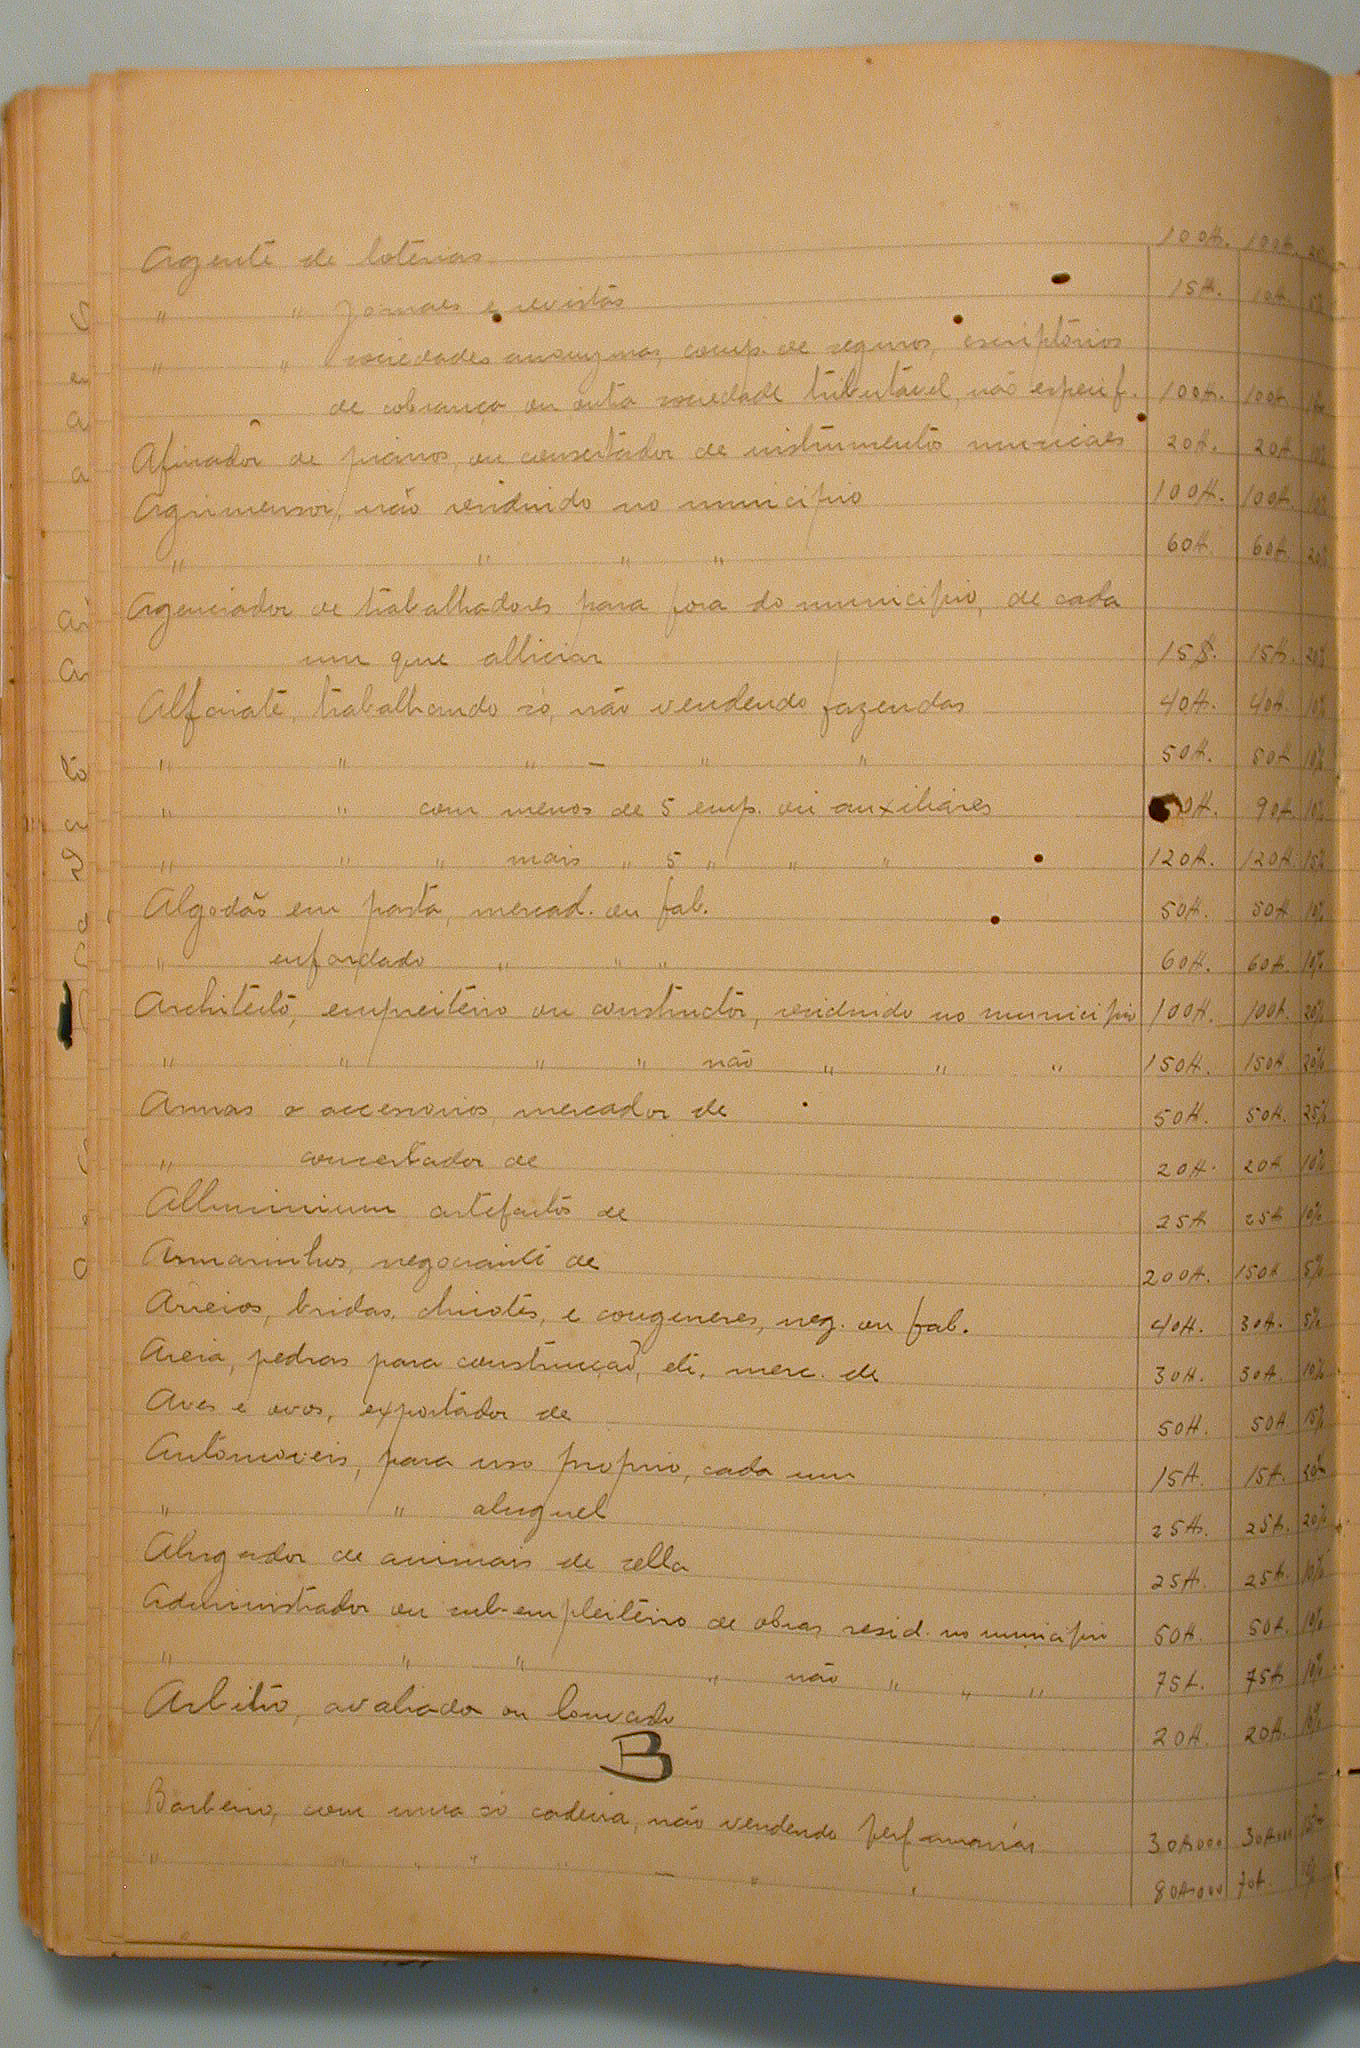 Agente de loterias 100$. 100$.
" " Jornaes e revistas 15$. 10$. 5%
" " sociedades anonymas, comp. de seguros, escriptorios
de cobrança ou outra sociedade tributável, não especif. 100$. 100$.
Afinador de pianos, ou consertador de instrumentos musicaes 20$. 20$. 10%
Agrimensor, não residindo no municipio 100$. 100$. 10%
" " " " 60$. 60$. 20%
Agenciador de trabalhadores para fora do municipio, de cada
um que alliciar 15$. 15$. 20%
Alfaiate, trabalhando só, não vendendo fazendas 40$. 40$. 10%
" " " — " " 50$. 50$ 10%
" " com menos de 5 emp. ou auxiliares 0$. 90$. 10%
" " " mais " 5 " " " 120$. 120$. 15%
Algodão em pasta, mercad. ou fab. 50$. 50$ 10%
" enfardado " " " 60$. 60$. 10%
Architecto, empreiteiro ou constructor, residindo no municipio 100$. 100$. 20%
" " " " não " " " 150$. 150$. 20%
Armas e accessorios, mercador de 50$. 50$. 25%
" concertador de 20$. 20$ 10%
Alluminium artefactos de 25$ 25$ 10%
Armarinhos, negociante de 200$. 150$ 5%
Arreios, bridas, chicotes, e congeneres, neg. ou fab. 40$. 30$. 5%
Areia, pedras para construcção, etc. merc. de 30$. 30$. 10%
Aves e ovos, exportador de 50$. 50$ 15%
Automoveis, para uso proprio, cada um 15$. 15$. 20%
" " aluguel 25$. 25$. 20%
Alugador de animais de sella 25$. 25$. 10%
Administrador ou sub-empleiteiro de obras resid. no municipio 50$. 50$. 10%
" " " " não " " " 75$. 75$ 10%
Arbitro, avaliador ou louvado 20$. 20$. 10%
B
Barbeiro, com uma só cadeira, não vendendo perfumarias 30$000 30$000
" " " " " — " " 80$000 70$.